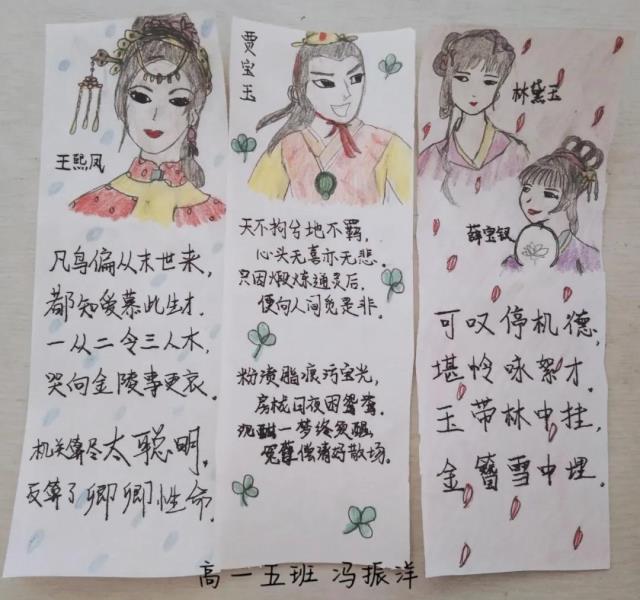 王熙凤
凡鸟偏从末世来,
都知爱慕此生才.
一从二令三人木,
哭向金陵事更哀.
机关算尽太聪明,
反算了卿卿性命.
贾宝玉
天不拘兮地不羁,
心头无喜亦无悲.
只因煅炼通灵后,
便向人间觅是非.
粉渍脂痕污宝光,
房栊日夜困鸳鸯.
沉酣一梦终须醒,
冤孽偿清好散场.
林黛玉
薛宝钗
可叹停机德,
堪怜咏絮才.
玉带林中挂,
金簪雪中埋.
高一五班 冯振洋